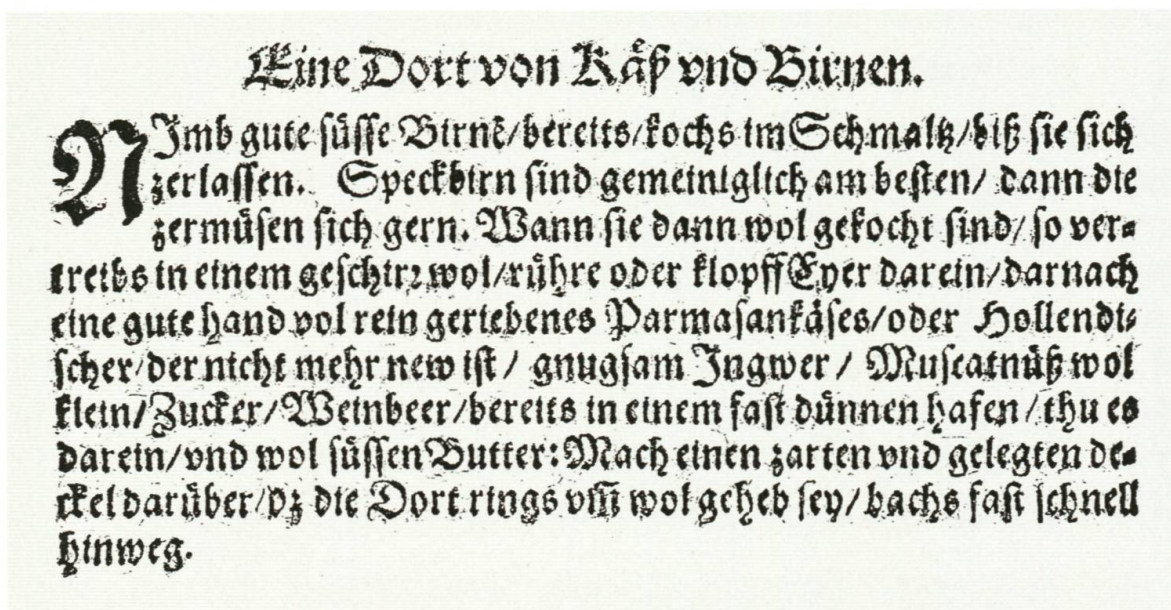 Eine Dort von Käß vnd Birnen.
NJmb gute süsse Birnē/bereits/kochs im Schmaltz/biß sie sich
zerlassen. Speckbirn sind gemeiniglich am besten/ dann die
zermüsen sich gern. Wann sie dann wol gekocht sind/ so ver-
treibs in einem geschirꝛ wol/rühre oder klopff Eyer darein/darnach
eine gute hand vol rein geriebenes Parmasankäses/oder Hollendi-
scher/der nicht mehr new ist/ gnugsam Jngwer/ Muscatnüß wol
klein/Zucker/Weinbeer/bereits in einem fast dünnen hafen/thu es
darein/vnd wol süssen Butter: Mach einen zarten vnd gelegten de-
ckel darüber/dz die Dort rings vm̃ wol geheb sey/bachs fast schnell
hinweg.